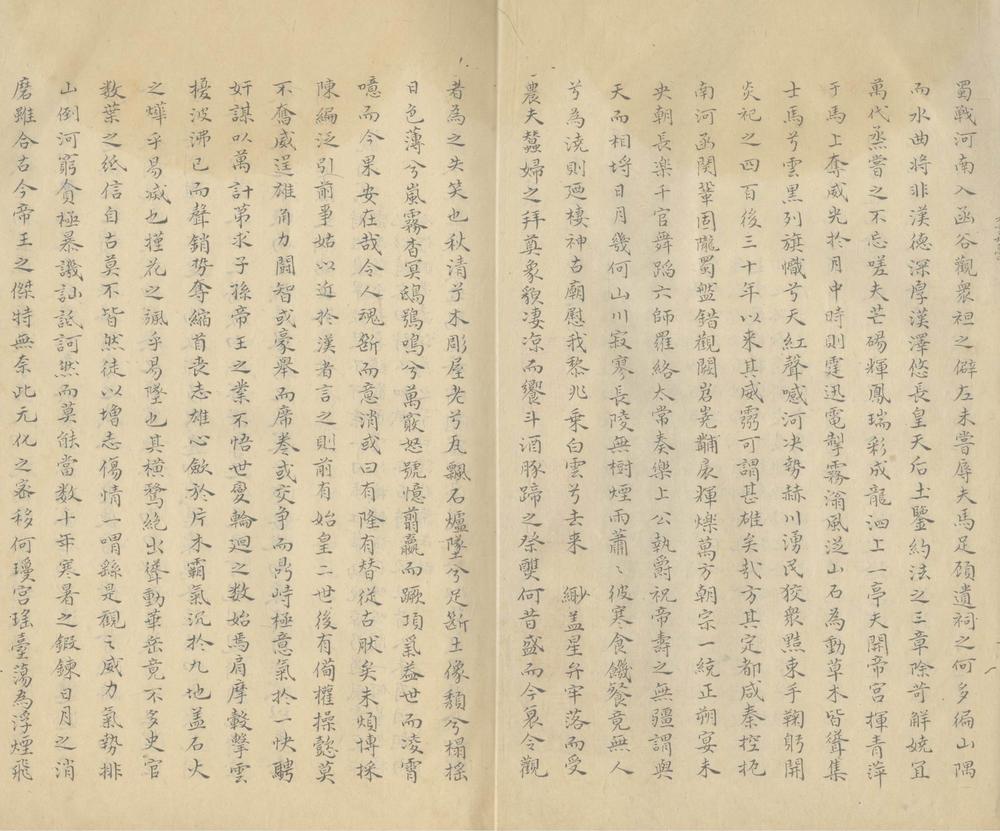 蜀戰河南入函谷觀眾袒之僻左未嘗辱夫馬足碩遺祠之何多徧山隅
而水曲將非漢德深厚漢澤悠長皇天后土鑒約法之三章除苛解嬈宜
萬代烝嘗之不忘嗟夫芒碭輝鳳瑞彩成龍泗上一亭夫開帝宮揮青萍
于馬上奪威光於月中時則霆迅電掣霧滃風逆山石為動草木皆聳集
士馬兮雲黑列旗幟兮天紅聲喊河决勢赫川湧民狡眾黠束手鞠躬開
炎祀之四百後三十年以來其威霛可謂甚雄矣㢤方其定都咸秦控扼
南河函関鞏固隴蜀盤錯觀闕岧嶤黼扆輝爍萬方朝宗一統正朔宴未
央朝長楽千官舞蹈六師羅絡太常奏樂上公執爵祝帝壽之無疆謂與
天而相埒日月幾何山川寂寥長陵無樹煙雨蕭〻彼寒食饑餐竟無人
兮為澆則廼棲神古廟慰我黎兆乗白雲兮去來 緲盖星弁牢落而受
農夫蠶婦之拜奠象貌凄凉而饗斗酒豚蹄之祭龔何昔盛而今衰令觀
者為之失笑也秋清兮木彫屋老兮瓦飄石爐墜兮足斷土像頽兮榻揺
日色薄兮嵐霧杳冥鴟鴞鳴兮萬竅怒號憶翦嬴而蹶項氣益世而凌霄
噫而今果安在哉令人魂斷而意消或曰有隆有替従古肰矣未煩博採
陳編泛引前事姑以近於漢者言之則前有始皇二世後有備權操懿莫
不奮威逞雄角力闘智或豪舉而席巻或交争而鼎峙極意氣於一快騁
奸謀以萬計第求子孫帝王之業不悟世變輪迴之数始焉肩摩轂擊雲
擾波沸已而聲銷勢奪縮首丧志雄心歛於片木霸氣沉於九地盖石火
之燁乎易滅也槿花之飄乎易墜也其橫騖絶出聳動華岳竟不多史官
数葉之紙信自古莫不皆然徒以增志傷情一喟繇是觀之威力氣勢排
山倒河窮貪極暴譏訕詆訶然而莫能當数十年寒暑之鍛鍊日月之消
磨雖合古今帝王之傑特無奈此元化之宻移何瓊宮瑤臺蕩為浮煙飛